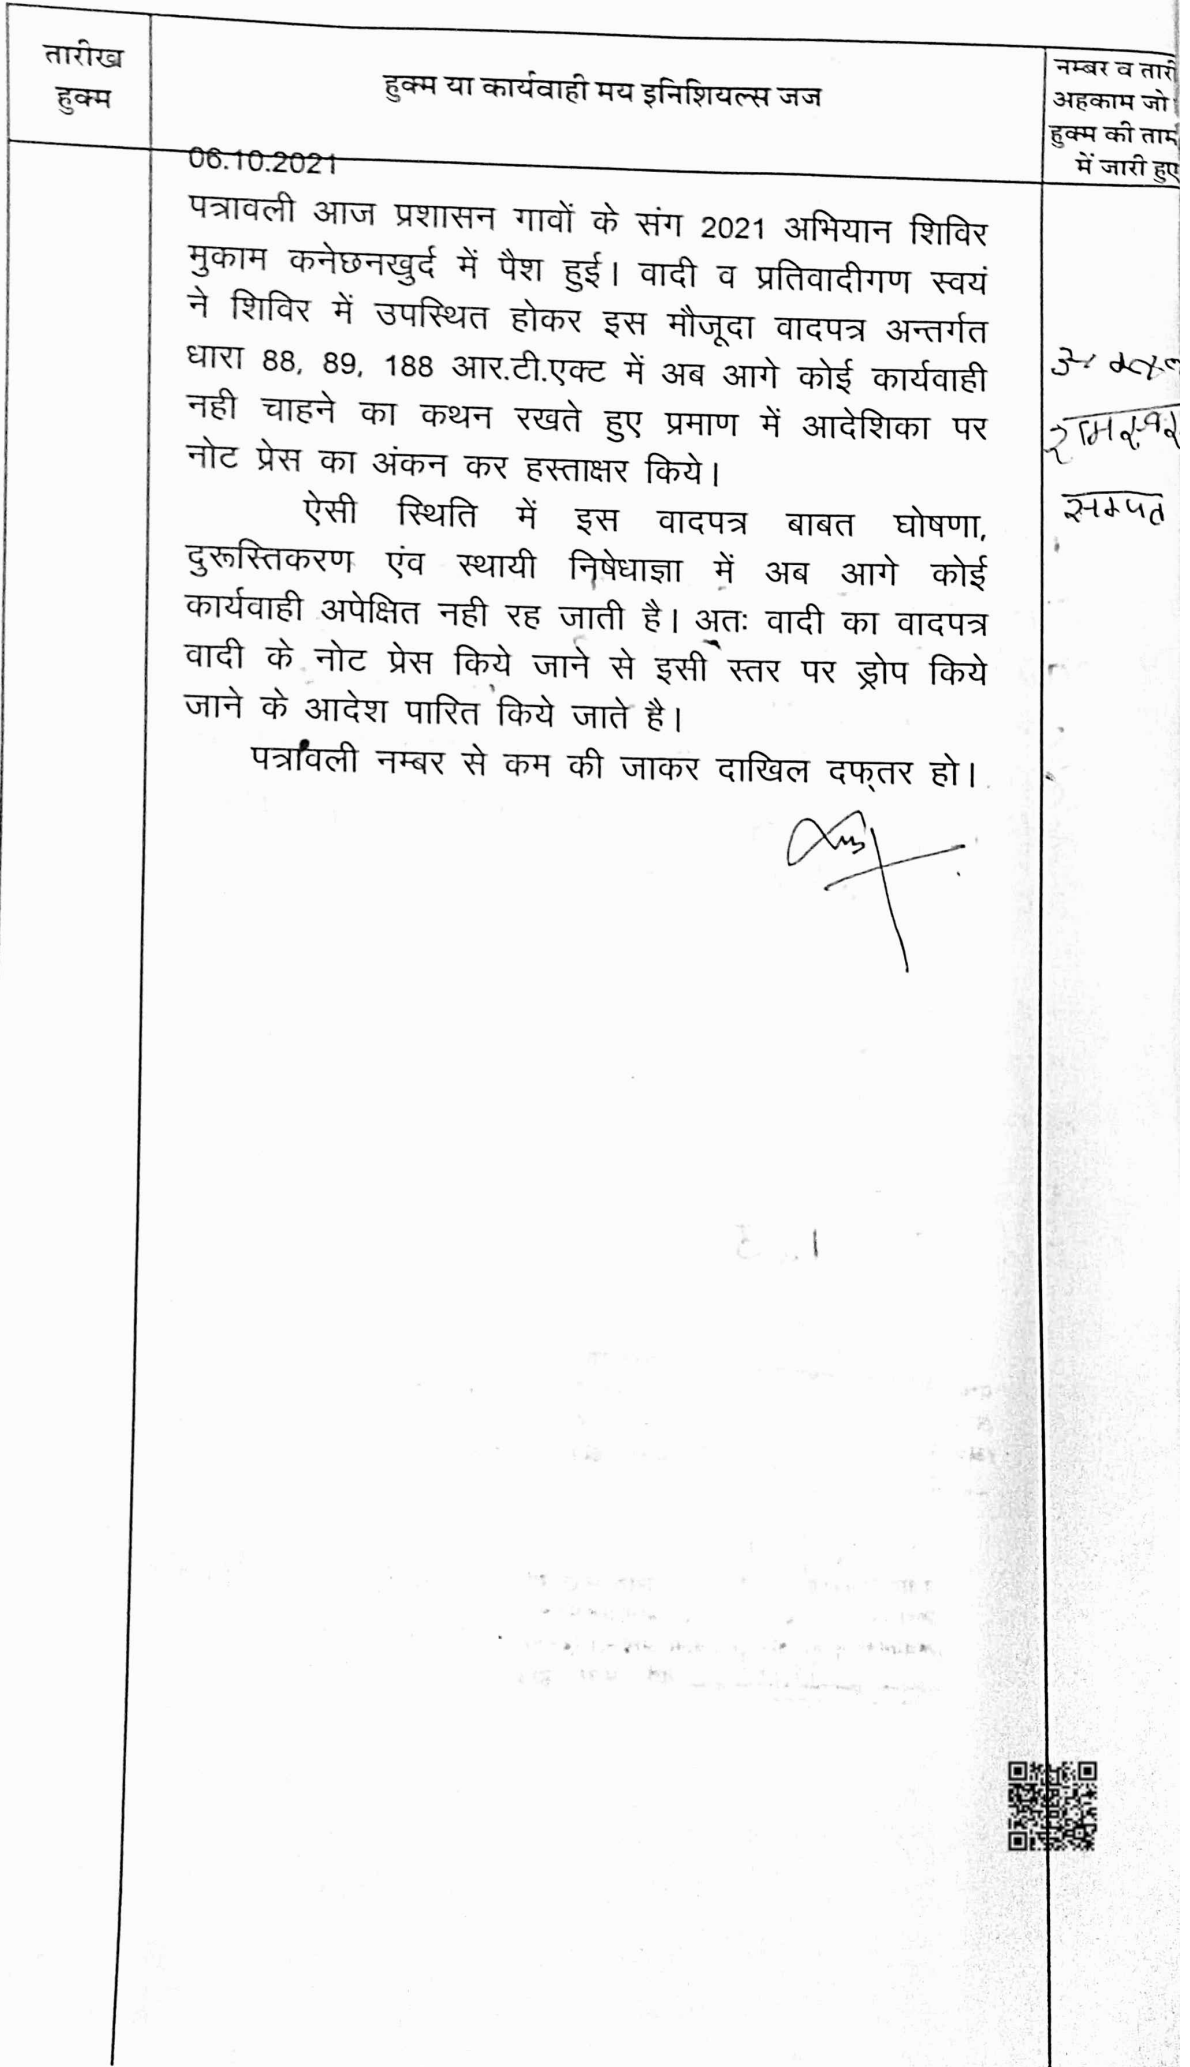 तारीख
हुक्म
हुक्म या कार्यवाही मय इनिशियल्स जज
नम्बर व तारी
अहकाम जो
हुक्म की ताम
में जारी हुए
06.10.2021
पत्रावली आज प्रशासन गावों के संग 2021 अभियान शिविर
मुकाम कनेछनखुर्द में पैश हुई। वादी व प्रतिवादीगण स्वयं
ने शिविर में उपस्थित होकर इस मौजूदा वादपत्र अन्तर्गत
धारा 88, 89, 188 आर.टी.एक्ट में अब आगे कोई कार्यवाही
नही चाहने का कथन रखते हुए प्रमाण में आदेशिका पर
नोट प्रेस का अंकन कर हस्ताक्षर किये।
ऐसी स्थिति में इस वादपत्र बाबत घोषणा,
दुरूस्तिकरण एंव स्थायी निषेधाज्ञा में अब आगे कोई
कार्यवाही अपेक्षित नही रह जाती है। अतः वादी का वादपत्र
वादी के नोट प्रेस किये जाने से इसी स्तर पर ड्रोप किये
जाने के आदेश पारित किये जाते है।
पत्रावली नम्बर से कम की जाकर दाखिल दफ्तर हो।
सम्पत